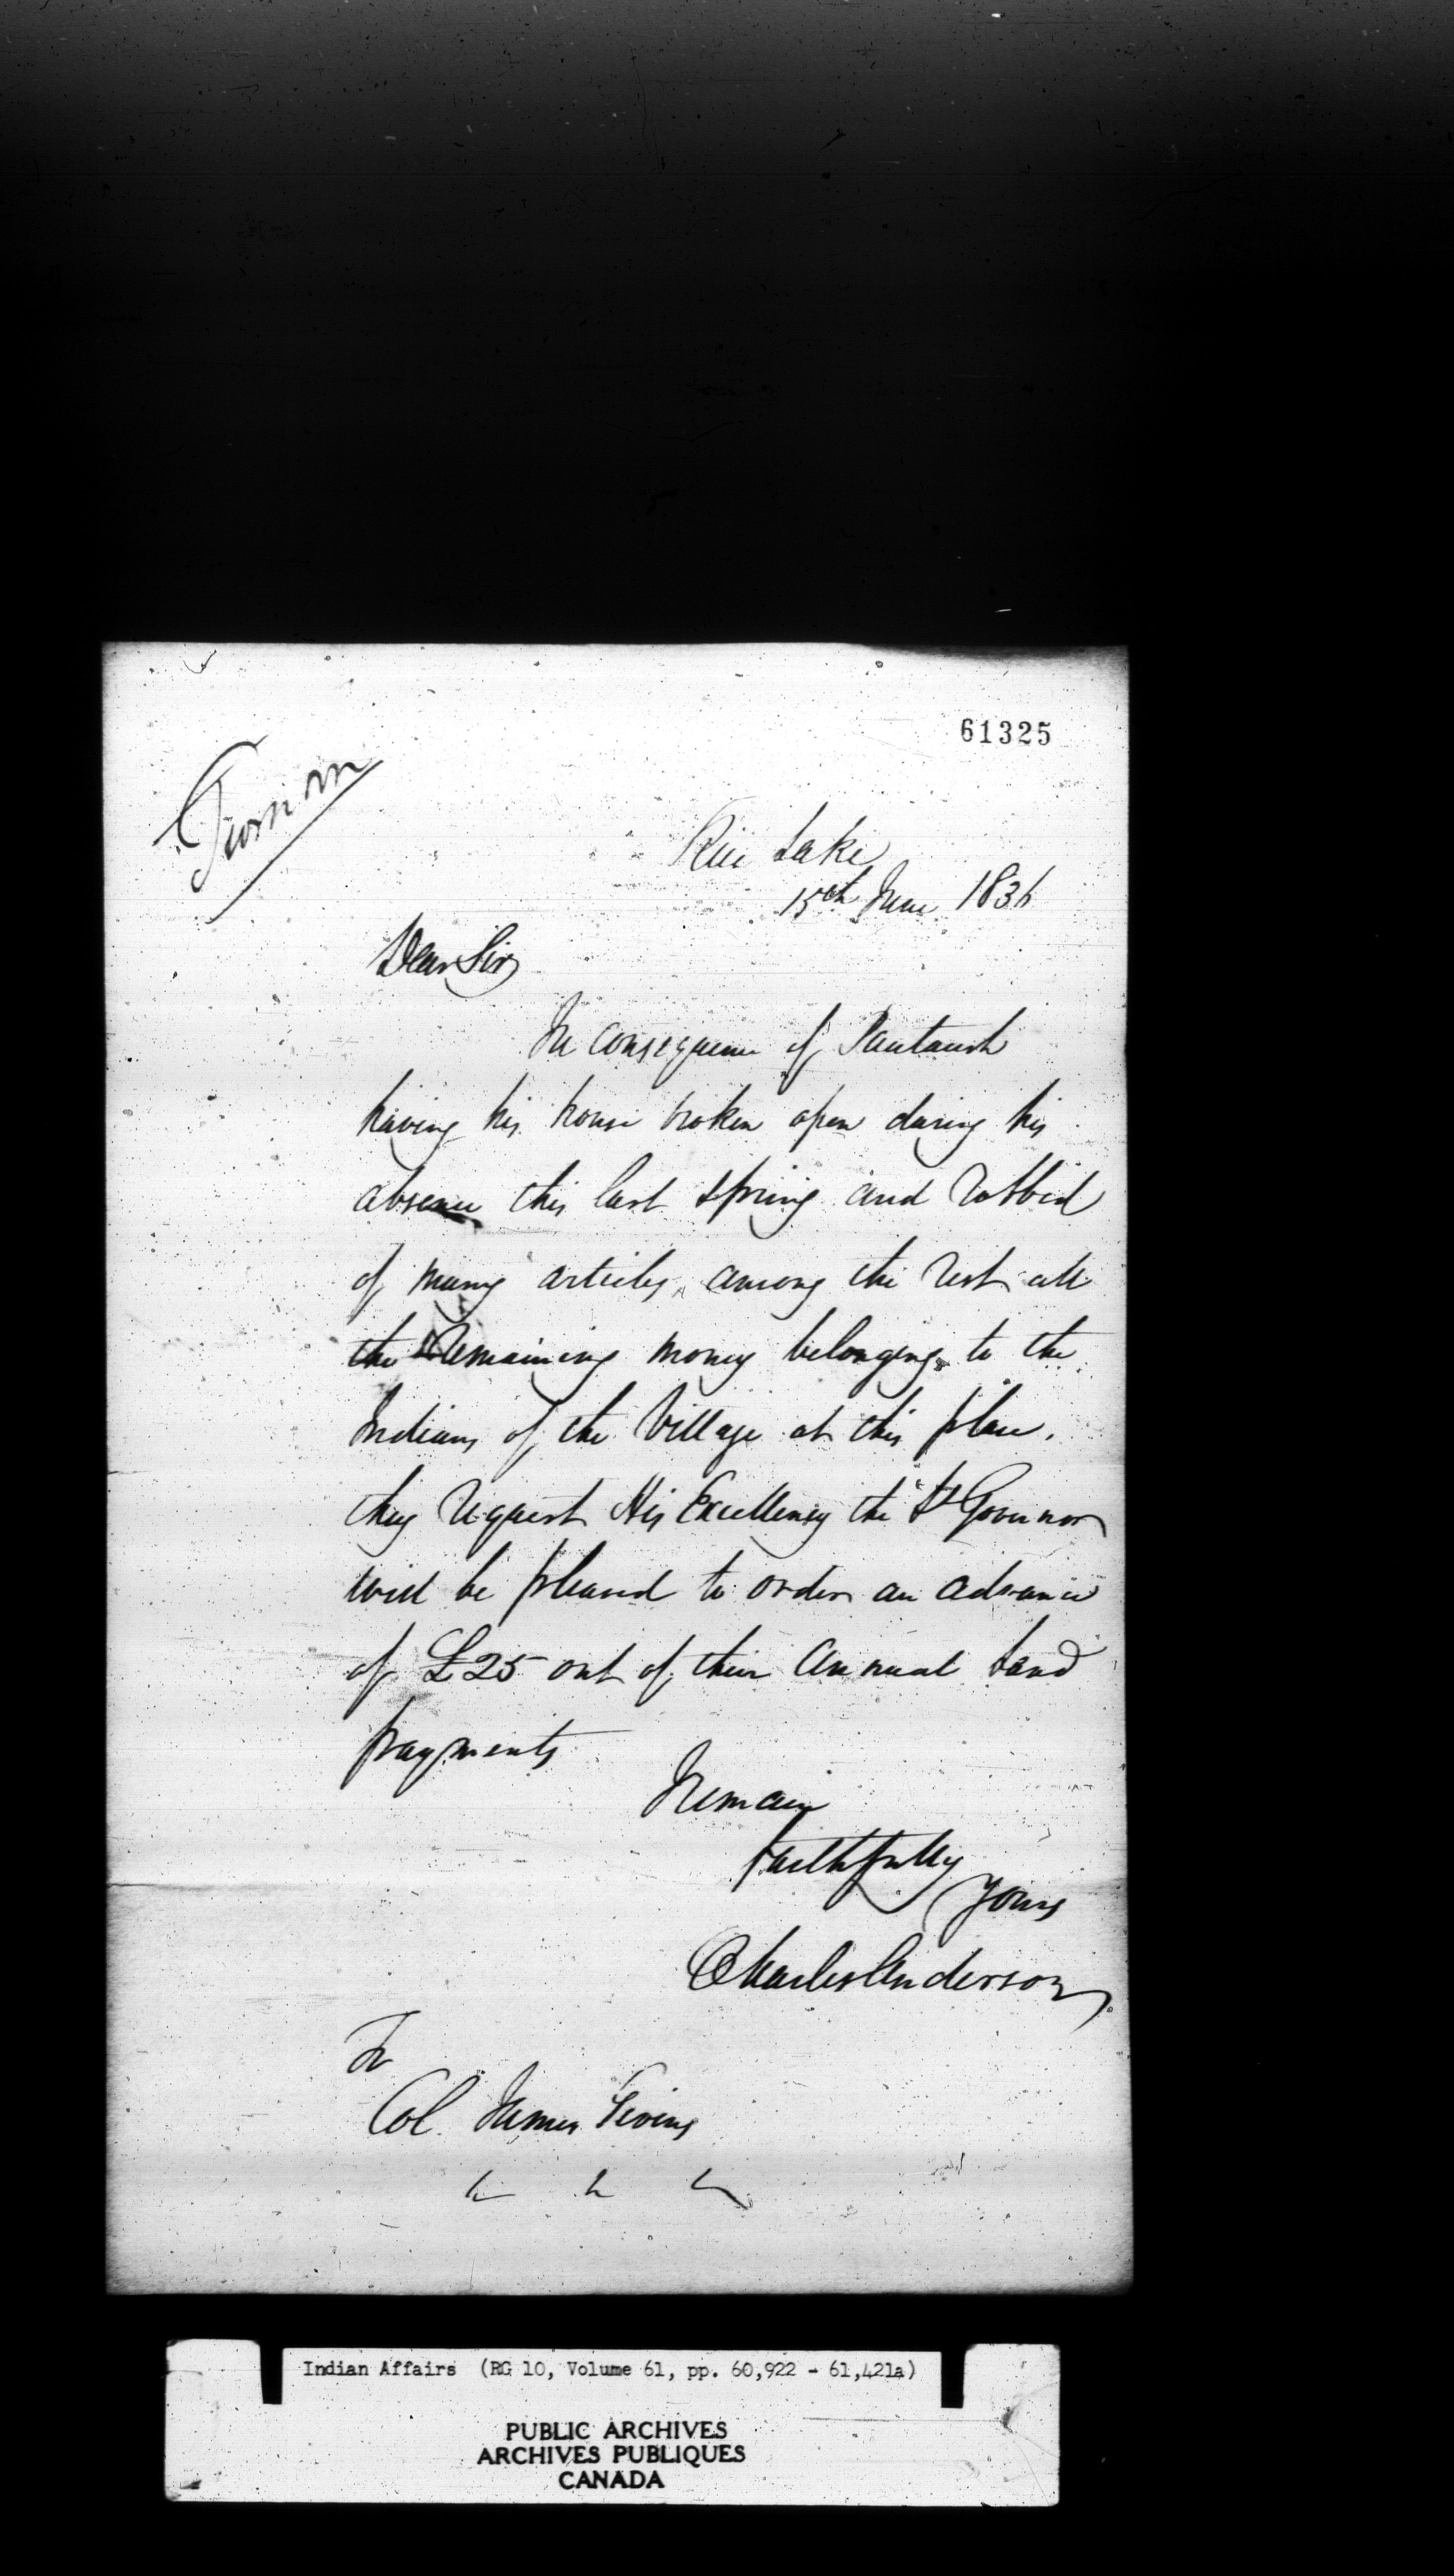 61325
Rice Lake
15th June 1836
Dear Sir
In consequence of Pautaush
having his house broken open during his
absence this last spring and robbed
of many articles, among the rest all
the remaining money belonging to the
Indians of the Village at this place.
they request His Excellency the Lt Governor
will be pleased to order an advance
of £25 out of their Annual Land
payments
I remain
faithfully
Yours
Charles Anderson
To
Col. James Givins
Indian Affairs (RG 10, Volume 61, pp. 60,922 - 61,421a)
PUBLIC ARCHIVES
ARCHIVES PUBLIQUES
CANADA